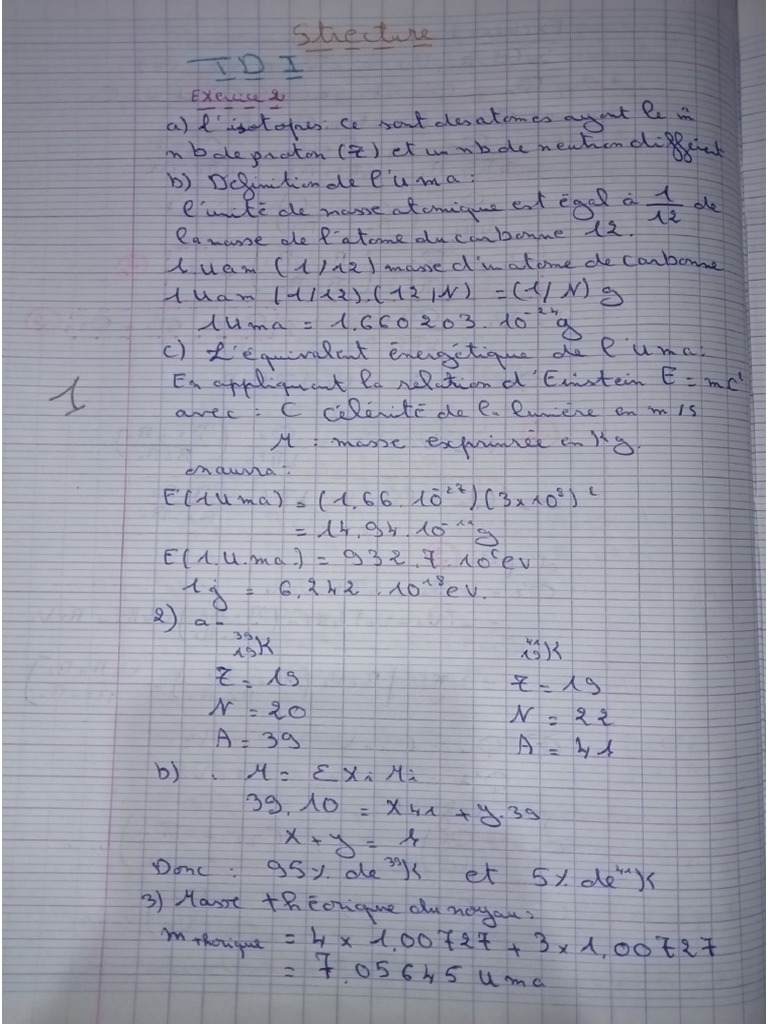 Strecture
TD I
Exercice 2
a) l'isotopes: ce sont des atomes ayant le m̂
nb de proton (Z) et un nb de neutron different
b) Definition de l'uma:
l'unité de masse atomique est égal à 1/12 de
la masse de l'atome du carbonne 12.
1 uam (1/12) masse d'un atome de carbonne
1 uam (1/12).(12/N) = (1/N) g
1 uma = 1.660203.10⁻²⁴g
c) L'équivalent énergétique de l'uma:
En appliquant la relation d'Einstein E = mc²
avec: C célérité de la lumière en m/s
M : masse exprimée en Kg.
on aura:
E(1uma) = (1.66.10⁻²⁷)(3x10⁸)²
= 14.94.10⁻¹¹g
E(1.u.ma.) = 932.7.10⁶ev
1j = 6.242.10¹⁸ev.
2) a-
³⁹₁₉K ⁴¹₁₉K
Z = 19 Z = 19
N = 20 N = 22
A = 39 A = 41
b) . M = Σ Xi Mi
39.10 = x41 + y.39
x + y = 1
Donc : 95% de ³⁹K et 5% de ⁴¹K
3) Masse théorique du noyau:
m thorique = 4 x 1,00727 + 3 x 1,00727
= 7.05645 uma
1